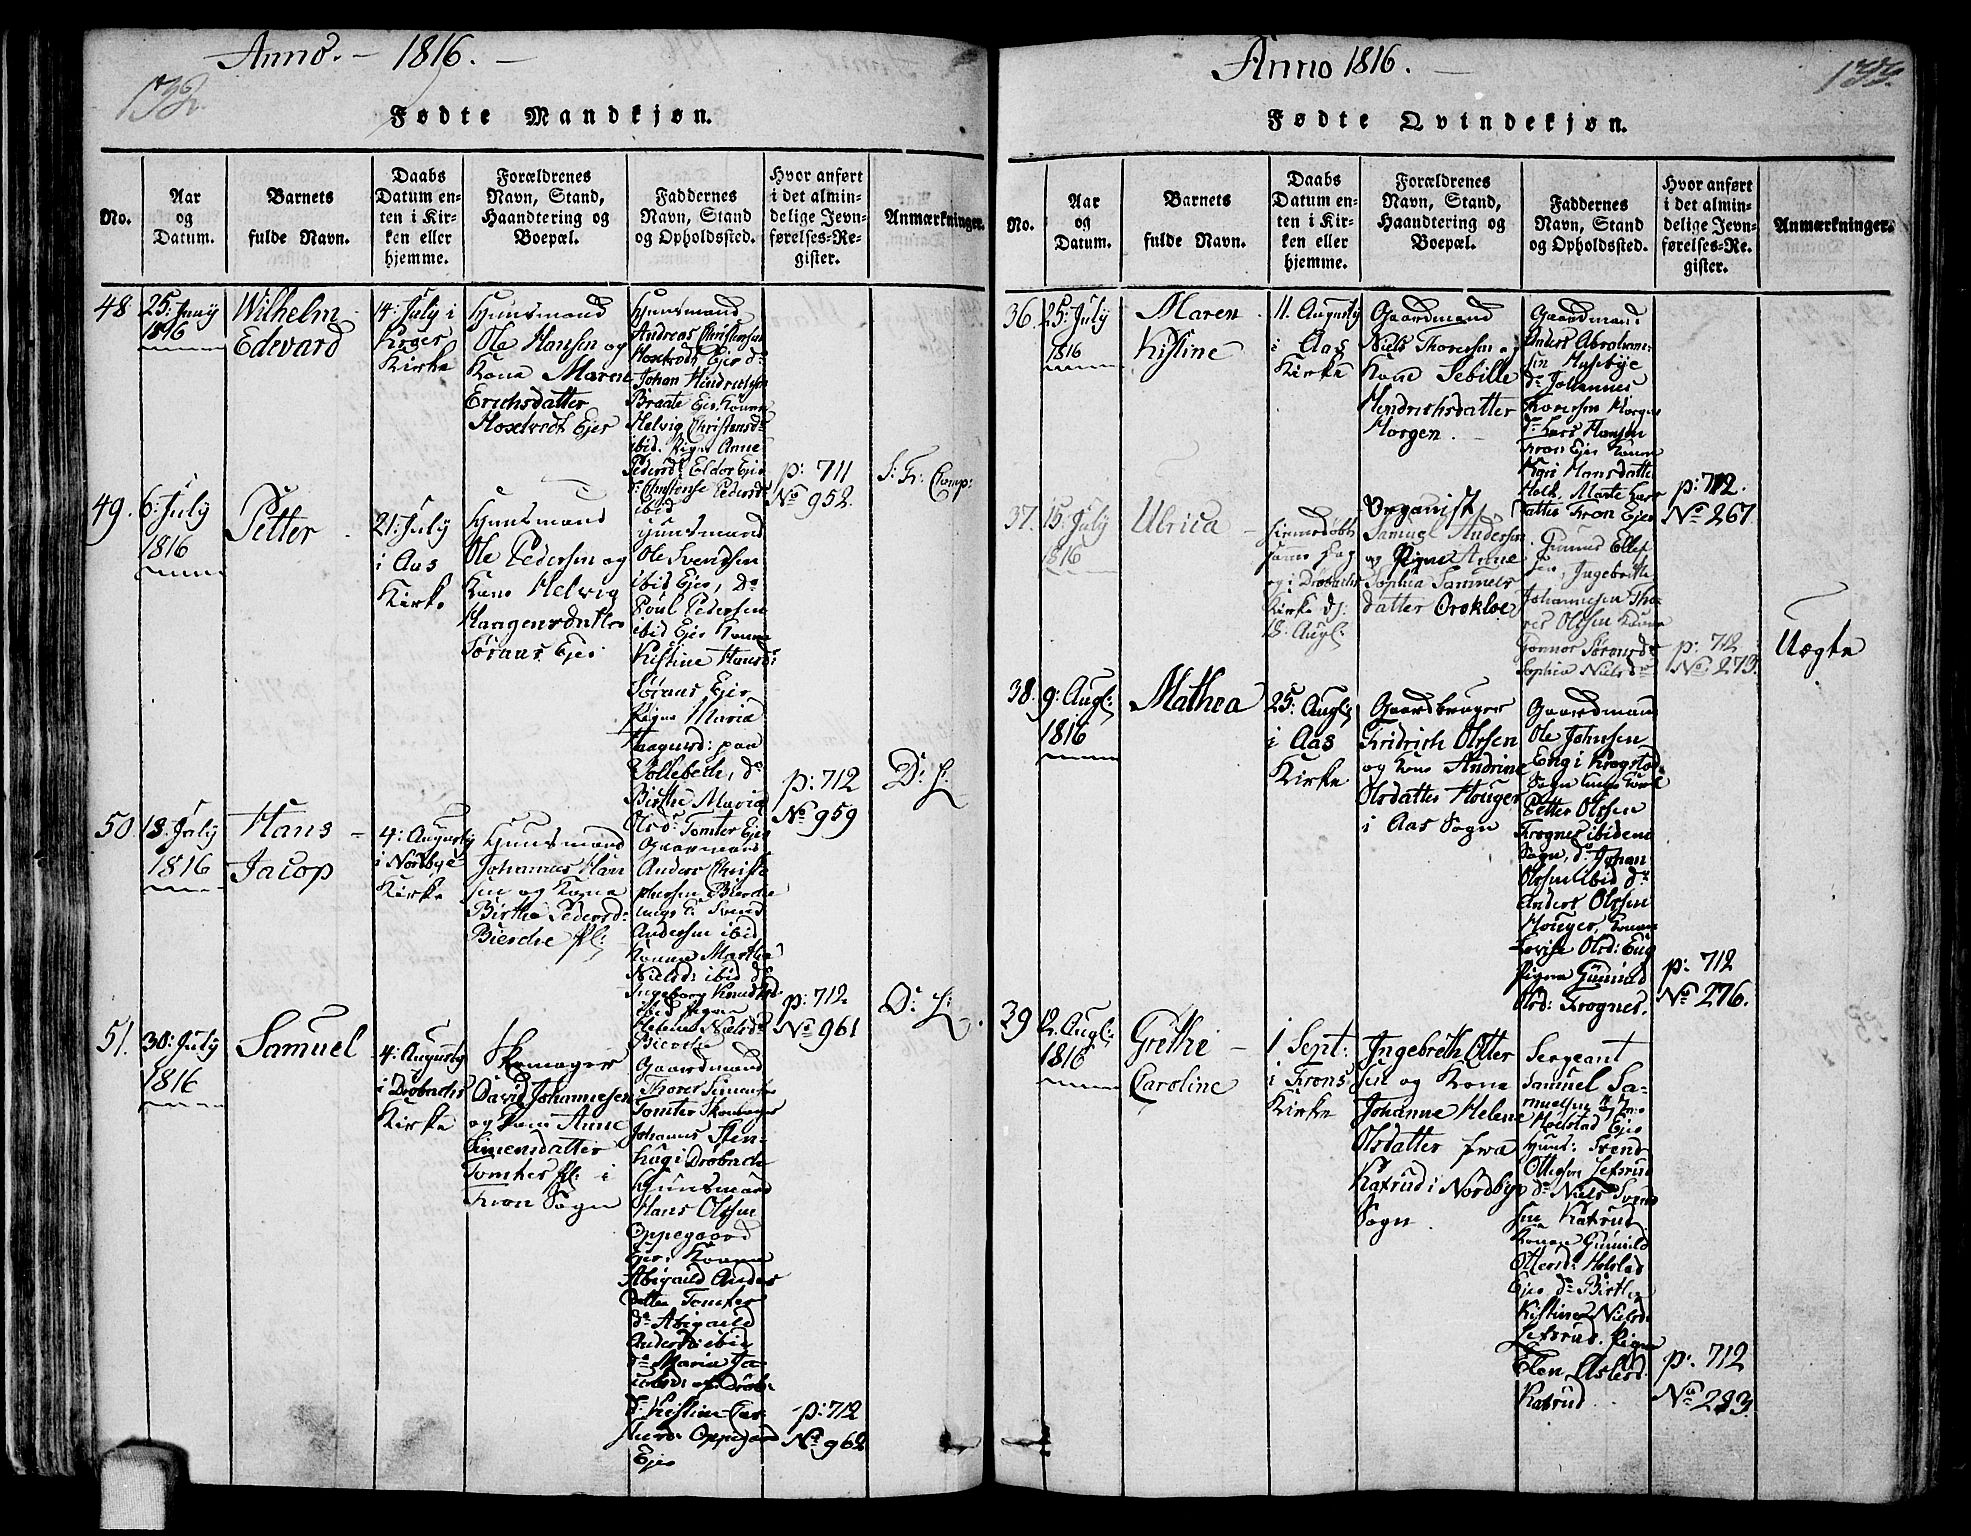 Anno. - 1816. -
132.
Fødte Mandkjøn.
No.
Aar
og
Datum.
Barnets
fulde Navn.
Daabs
Datum en-
ten i Kir-
ken eller
hjemme.
Forældrenes
Navn, Stand,
Haandtering og
Boepæl.
Faddernes
Navn, Stand
og Opholdssted.
Hvor anført
i det almin-
delige Jevn-
førelses-Re-
gister.
Anmærkninger.
48.
25: Juny
1816
Wilhelm
Edevard
14: July i
Kirke
Huusmand
Ole Hansen og
Kone Maren
Erichsdatter
Hoxtvedt Ejer
Huusmand
Andreas Christensen
Johan
Braate Ejer
Helvig Christensd:
ibid. Pigen Anne
ibid
p: 711
No 952.
49.
6: July
1816
Petter
21: July
i Aas
Kirke
Huusmand
Ole Pedersen og
Kone Helvig
Haagensdatter
Søraas Ejer
Huusmand
Ole Svendsen
ibid Ejer, Do
Poul Pedersen
ibid Ejer Konen
Kistine Hansd:
Søraas Ejer
Pigen Maria
Haagensd: paa
Vollebech, do
Birthe Maria
Olsd: Tomter Ejer
p: 712
No 959
50.
13: July
1816
Hans -
Jacop
4: Augusty
i Nordbye
Kirke
Huusmand
Johannes Han
sen og Kone
Birthe Pedersd:
Bierche
Gaarmand
Anders Christ-
phersen Bierche
Andersen ibid
Konen Martha
Nielsd: ibid do
Ingeborg
ibid Pigen
Helene Nielsd:
Bierche
p: 712
No 961
51.
30: July
1816
Samuel
4: Augusty
i Drøbachs
Kirke
Skomager
David Johannesen
og Kone Anne
Simensdatter
Tomter i
Kron Sogn
Gaardmand
Thorer Simensen
Tomter Skomager
Johannes Sten-
i Drøbach
Huusmand
Hans Olssen
Oppegaard
Ejer: Konen
Abigaild Anders
datter Tomter
do Abigaild
Andersd: ibid
do Maria Ja-
do Kistine
Oppegaard
Ejer
p: 712
No 962
Anno 1816. -
133.
Fødte Qvindekjøn.
No.
Aar
og
Datum.
Barnets
fulde Navn.
Daabs
Datum en-
ten i Kir-
ken eller
hjemme.
Forældrenes
Navn, Stand,
Haandtering og
Boepæl.
Faddernes
Navn, Stand
og Opholdssted.
Hvor anført
i det almin-
delige Jevn-
førelses-Re-
gister.
Anmærkninger.
36.
25: July
1816
Maren
Kistine
11. Augusty
i Aas
Kirke
Gaardmand
Niels Thoresen og
Kone Sebille
Hendrichsdatter
Horgen.
Gaardmand
Anders Abraham-
sen Husebye
do Johannes
Horgen
do Lars Hansen
Kron Ejer Konen
Kari Hansdatter
Holt. Marte Lars
datter Kron Ejer
p: 712.
No 267.
37.
15. July
1816
Ulrica -
Hiemmedøbt
samme Dag
og i Drøbachs
Kirke d:
18. Augl:
Organist
Samuel Andersen
og Pigen Anne
Sophia Samuels
datter Orokloe
Gunud Ellef
sen, Ingebreth
Johannesen Tho-
res Olssen Konen
Gonnor Sørensd:
Sophia Nielsd:
p: 712
No 273.
Uægte
38.
9: Augl:
1816
Mathea
25: Augl:
i Aas
Kirke
Gaardbruger
Fridrich Olssen
og Kone Andrine
Olsdatter Houger
i Aas Sogn
Gaardmand
Ole Johnsen
Eng i Krogstad
Sogn
Petter Olssen
Frogner ibidem
Sogn, do Johan
Olssen ibid do
Anders Olssen
Houger, Konen
Lovise Olsd: Eng
Pigen Gunnild
Olsd: Frogner.
p: 712
No 276.
39
12. Augl:
1816
Grethe -
Caroline
1 Sept:
i Krons
Kirke
Ingebreth Otter
sen og Kone
Johanne Helene
Olsdatter fra
Katrud i Nordbye
Sogn
Sergeant
Samuel Sa-
muelsen
Holstad Ejer
Huus: Svend
Ottersen Letsrud
do Niels Svend
sen Katrud
Konen Gunnild
Ottersd: Holstad
Ejer do Birthe
Kistine Nielsd:
Letsrud. Pigen
Elen
Katrud
p: 712
No 283.